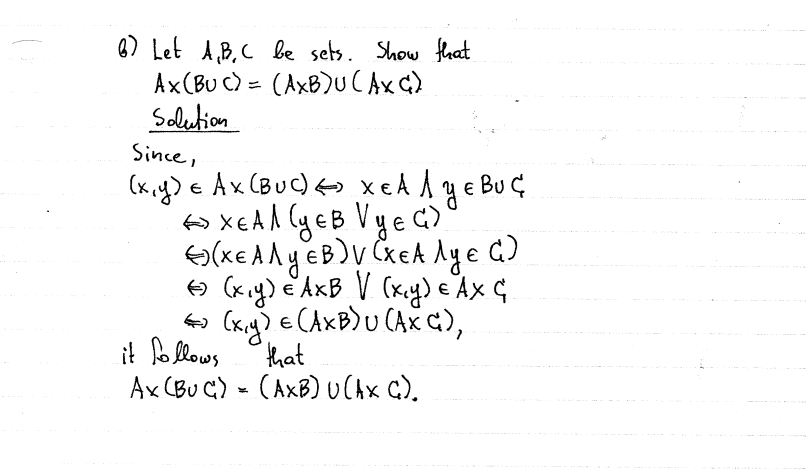 b) Let A,B,C be sets. Show that
A×(B∪C) = (A×B)∪(A×C)
Solution
Since,
(x,y) ∈ A×(B∪C) ⇔ x∈A ∧ y∈B∪C
⇔ x∈A ∧ (y∈B ∨ y∈C)
⇔ (x∈A ∧ y∈B) ∨ (x∈A ∧ y∈C)
⇔ (x,y) ∈ A×B ∨ (x,y) ∈ A×C
⇔ (x,y) ∈ (A×B)∪(A×C),
it follows that
A×(B∪C) = (A×B)∪(A×C).